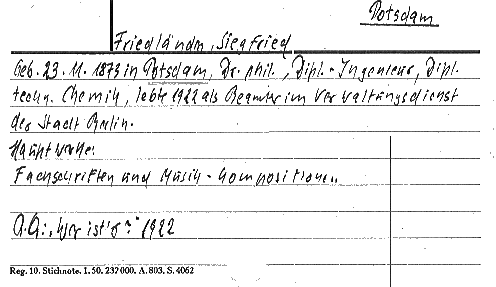 Potsdam
Friedländer, Siegfried
Geb. 23.11.1873 in Potsdam, Dr. phil., Dipl.-Ingenieur, Dipl.
techn. Chemik, lebte 1922 als Beamter im Verwaltungsdienst
der Stadt Berlin.
Hauptwerke:
Fachschriften und Musik-Kompositionen.
A.A.: „Wer ist's?" 1922
Reg. 10. Stichnote. 1. 50. 237000. A. 803. S. 4062